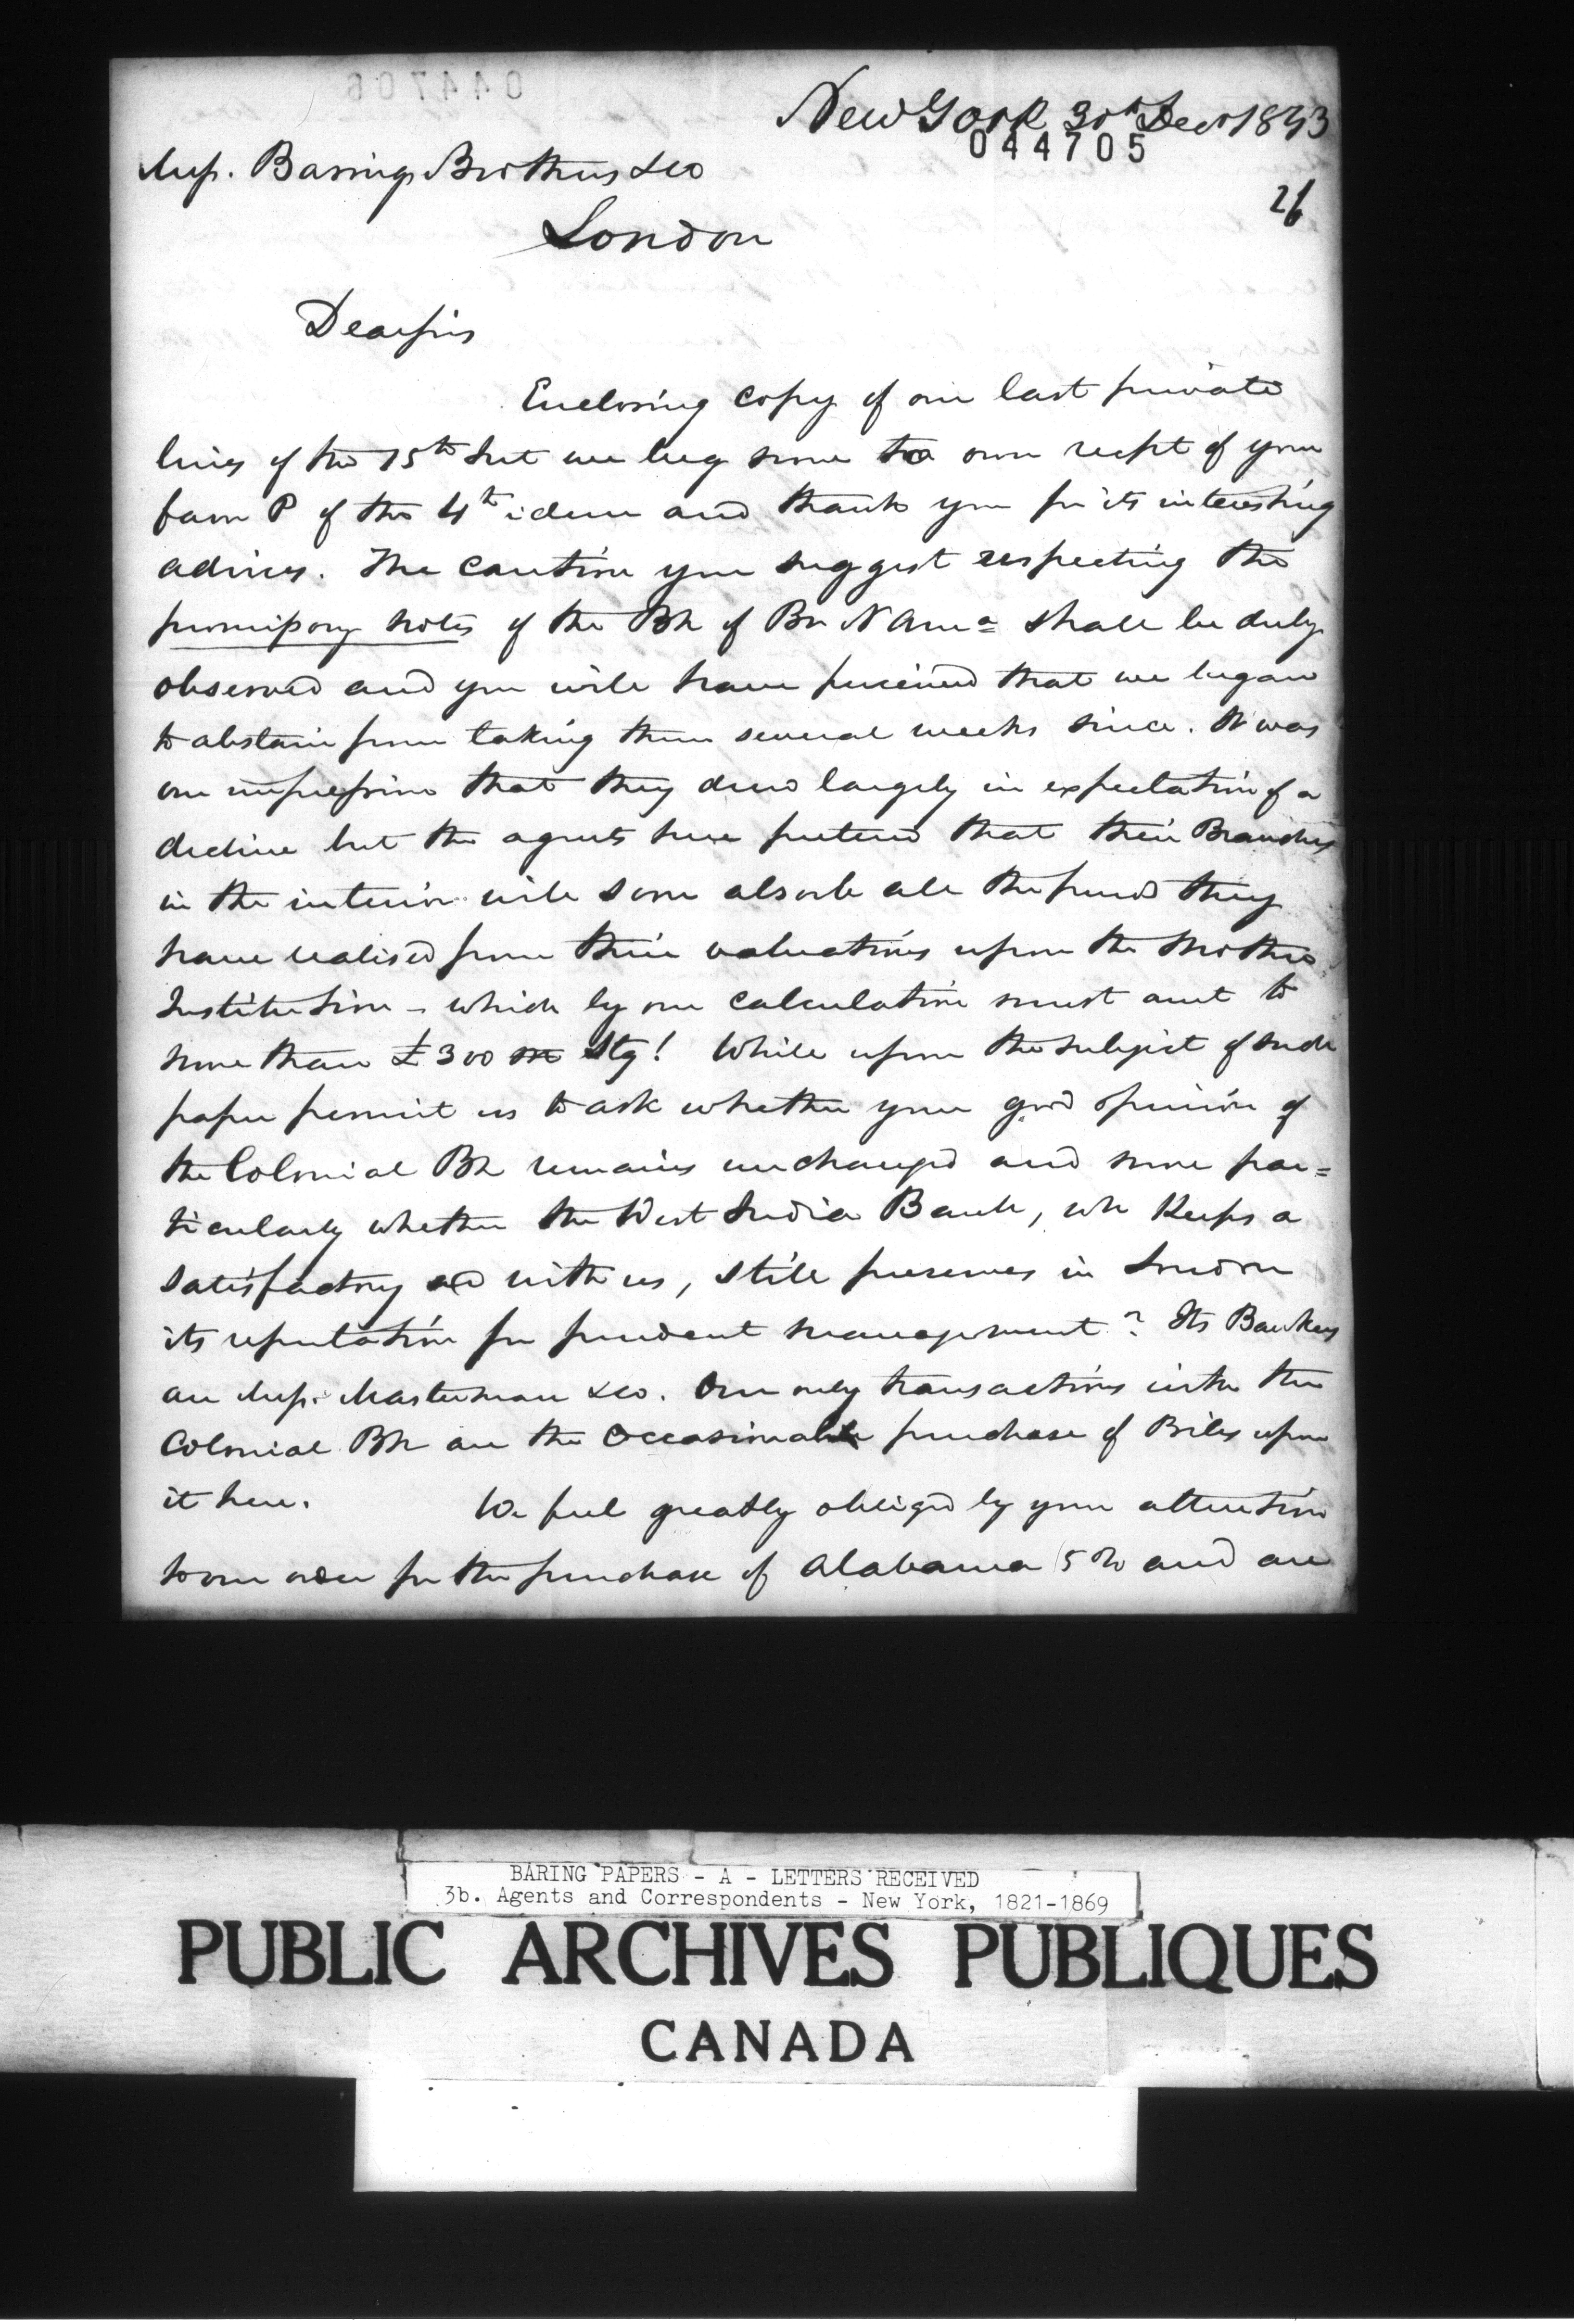 New York 30th Decr 1843
044705
26
Mess. Baring Brothers & Co
London
Dear Sirs
Enclosing copy of our last private
lines of the 15th Inst we beg now to own recpt of your
favor P of the 4th idem and thank you for its interesting
advices. The caution you suggest respecting the
promissory notes of the Bk of Br N Ama shall be duly
observed and you will have perceived that we began
to abstain from taking them several weeks since. It was
our impression that they drew largely in expectation of a
decline but the agents here pretend that their Branches
in the interior will soon absorb all the funds they
have realised from their valuations upon the Mother
Institution - which by our calculation must amt to
more than £300 m Stg! While upon the subject of such
paper permit us to ask whether your good opinion of
the Colonial Bk remains unchanged and more par=
ticularly whether the West India Bank, wh keeps a
satisfactory a/c with us, still preserves in London
its reputation for prudent management? Its Bankers
are Mess. Masterman & Co. Our only transactions with the
Colonial Bk are the occasional purchase of Bills upon
it here. We feel greatly obliged by your attention
to our order for the purchase of Alabama 5 % and are
BARING PAPERS - A - LETTERS RECEIVED
3b. Agents and Correspondents - New York, 1821-1869
PUBLIC ARCHIVES PUBLIQUES
CANADA